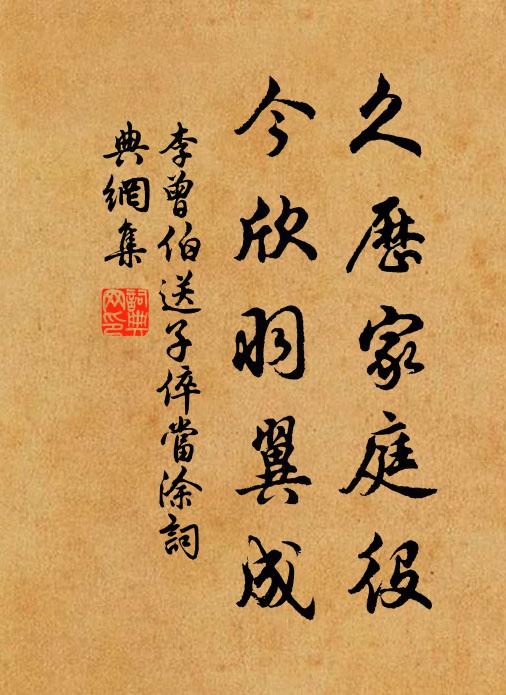 久歷家庭役
今欣羽翼成
李曾伯送子倅當涂詞
典網集
詞典
網印